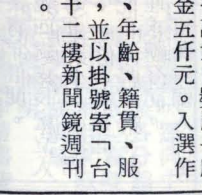 金五仟元。入選作
、年齡、籍貫、服
，並以掛號寄「台
十二樓新聞鏡週刊
。